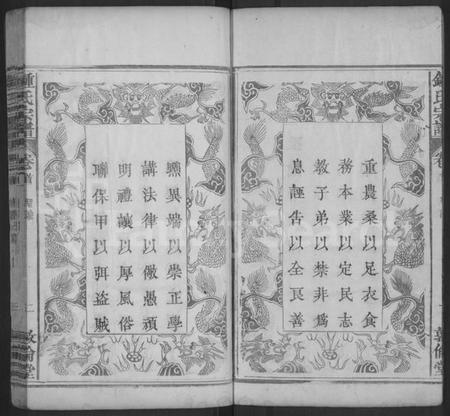 重農桑以足衣食
務本業以定民志
教子弟以禁非為
息誣告以全良善
黜異端以崇正學
講法律以儆愚頑
明禮讓以厚風俗
聯保甲以弭盜賊
鍾氏宗譜
卷首
敦倫堂
鍾氏宗譜
卷
敦倫堂